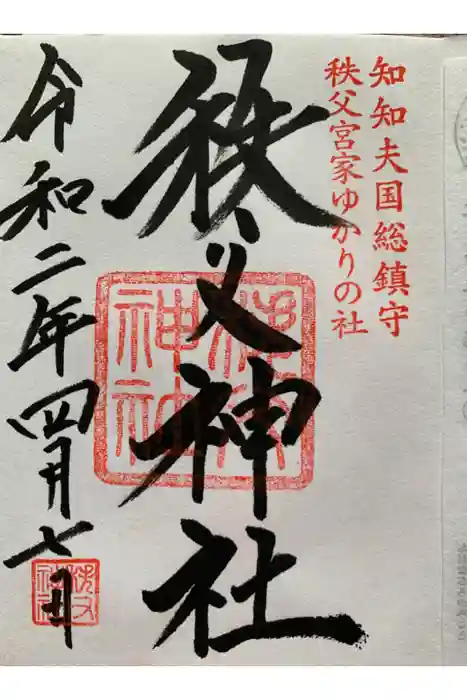 知知夫国総鎮守
秩父宮家ゆかりの社
秩父神社
令和二年四月七日
秩父神社
秩父神社